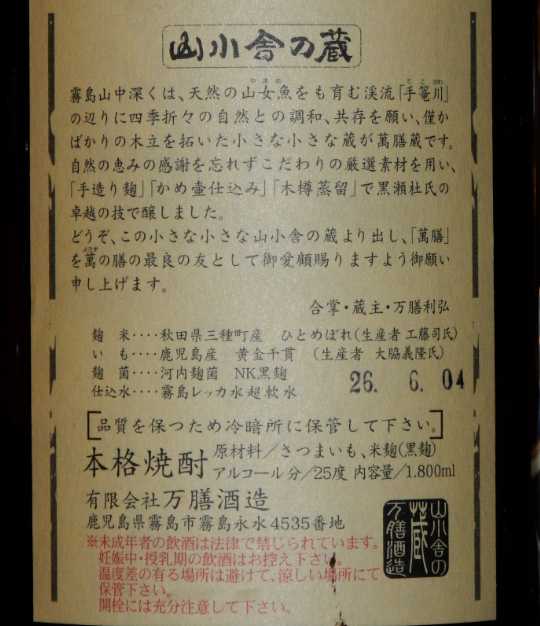 山小舎の蔵
霧島山中深くは、天然の山女魚をも育む渓流「手篭川」
の辺りに四季折々の自然との調和、共存を願い、僅か
ばかりの木立を拓いた小さな小さな蔵が萬膳蔵です。
自然の恵みの感謝を忘れずこだわりの厳選素材を用い、
「手造り麹」「かめ壷仕込み」「木樽蒸留」で黒瀬杜氏の
卓越の技で醸しました。
どうぞ、この小さな小さな山小舎の蔵より出し、「萬膳」
を萬の膳の最良の友として御愛顧賜りますよう御願い
申し上げます。
合掌・蔵主・万膳利弘
麹 米‥‥秋田県三種町産 ひとめぼれ(生産者 工藤司氏)
い も‥‥鹿児島産 黄金千貫 (生産者 大脇義隆氏)
麹 菌‥‥河内麹菌 NK黒麹
仕込水‥‥霧島レッカ水超軟水
26. 6. 04
品質を保つため冷暗所に保管して下さい。
本格焼酎
原材料/さつまいも、米麹(黒麹)
アルコール分/25度 内容量/1.800ml
有限会社万膳酒造
鹿児島県霧島市霧島永水4535番地
※未成年者の飲酒は法律で禁じられています。
妊娠中・授乳期の飲酒はお控え下さい。
温度差の有る場所は避けて、涼しい場所にて
保管下さい。
開栓には充分注意して下さい。
山小舎の
蔵
万膳酒造